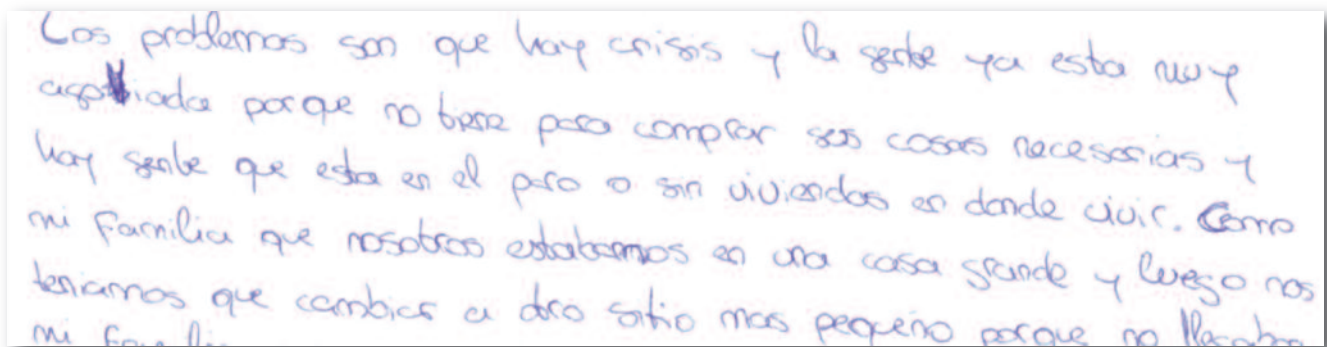 Los problemas son que hay crisis y la gente ya esta muy
agobiada porque no tiene para comprar sus cosas necesarias y
hay gente que esta en el paro o sin viviendas en donde vivir. Como
mi familia que nosotros estabamos en una casa grande y luego nos
teniamos que cambiar a otro sitio mas pequeño porque no llegaba
mi familia